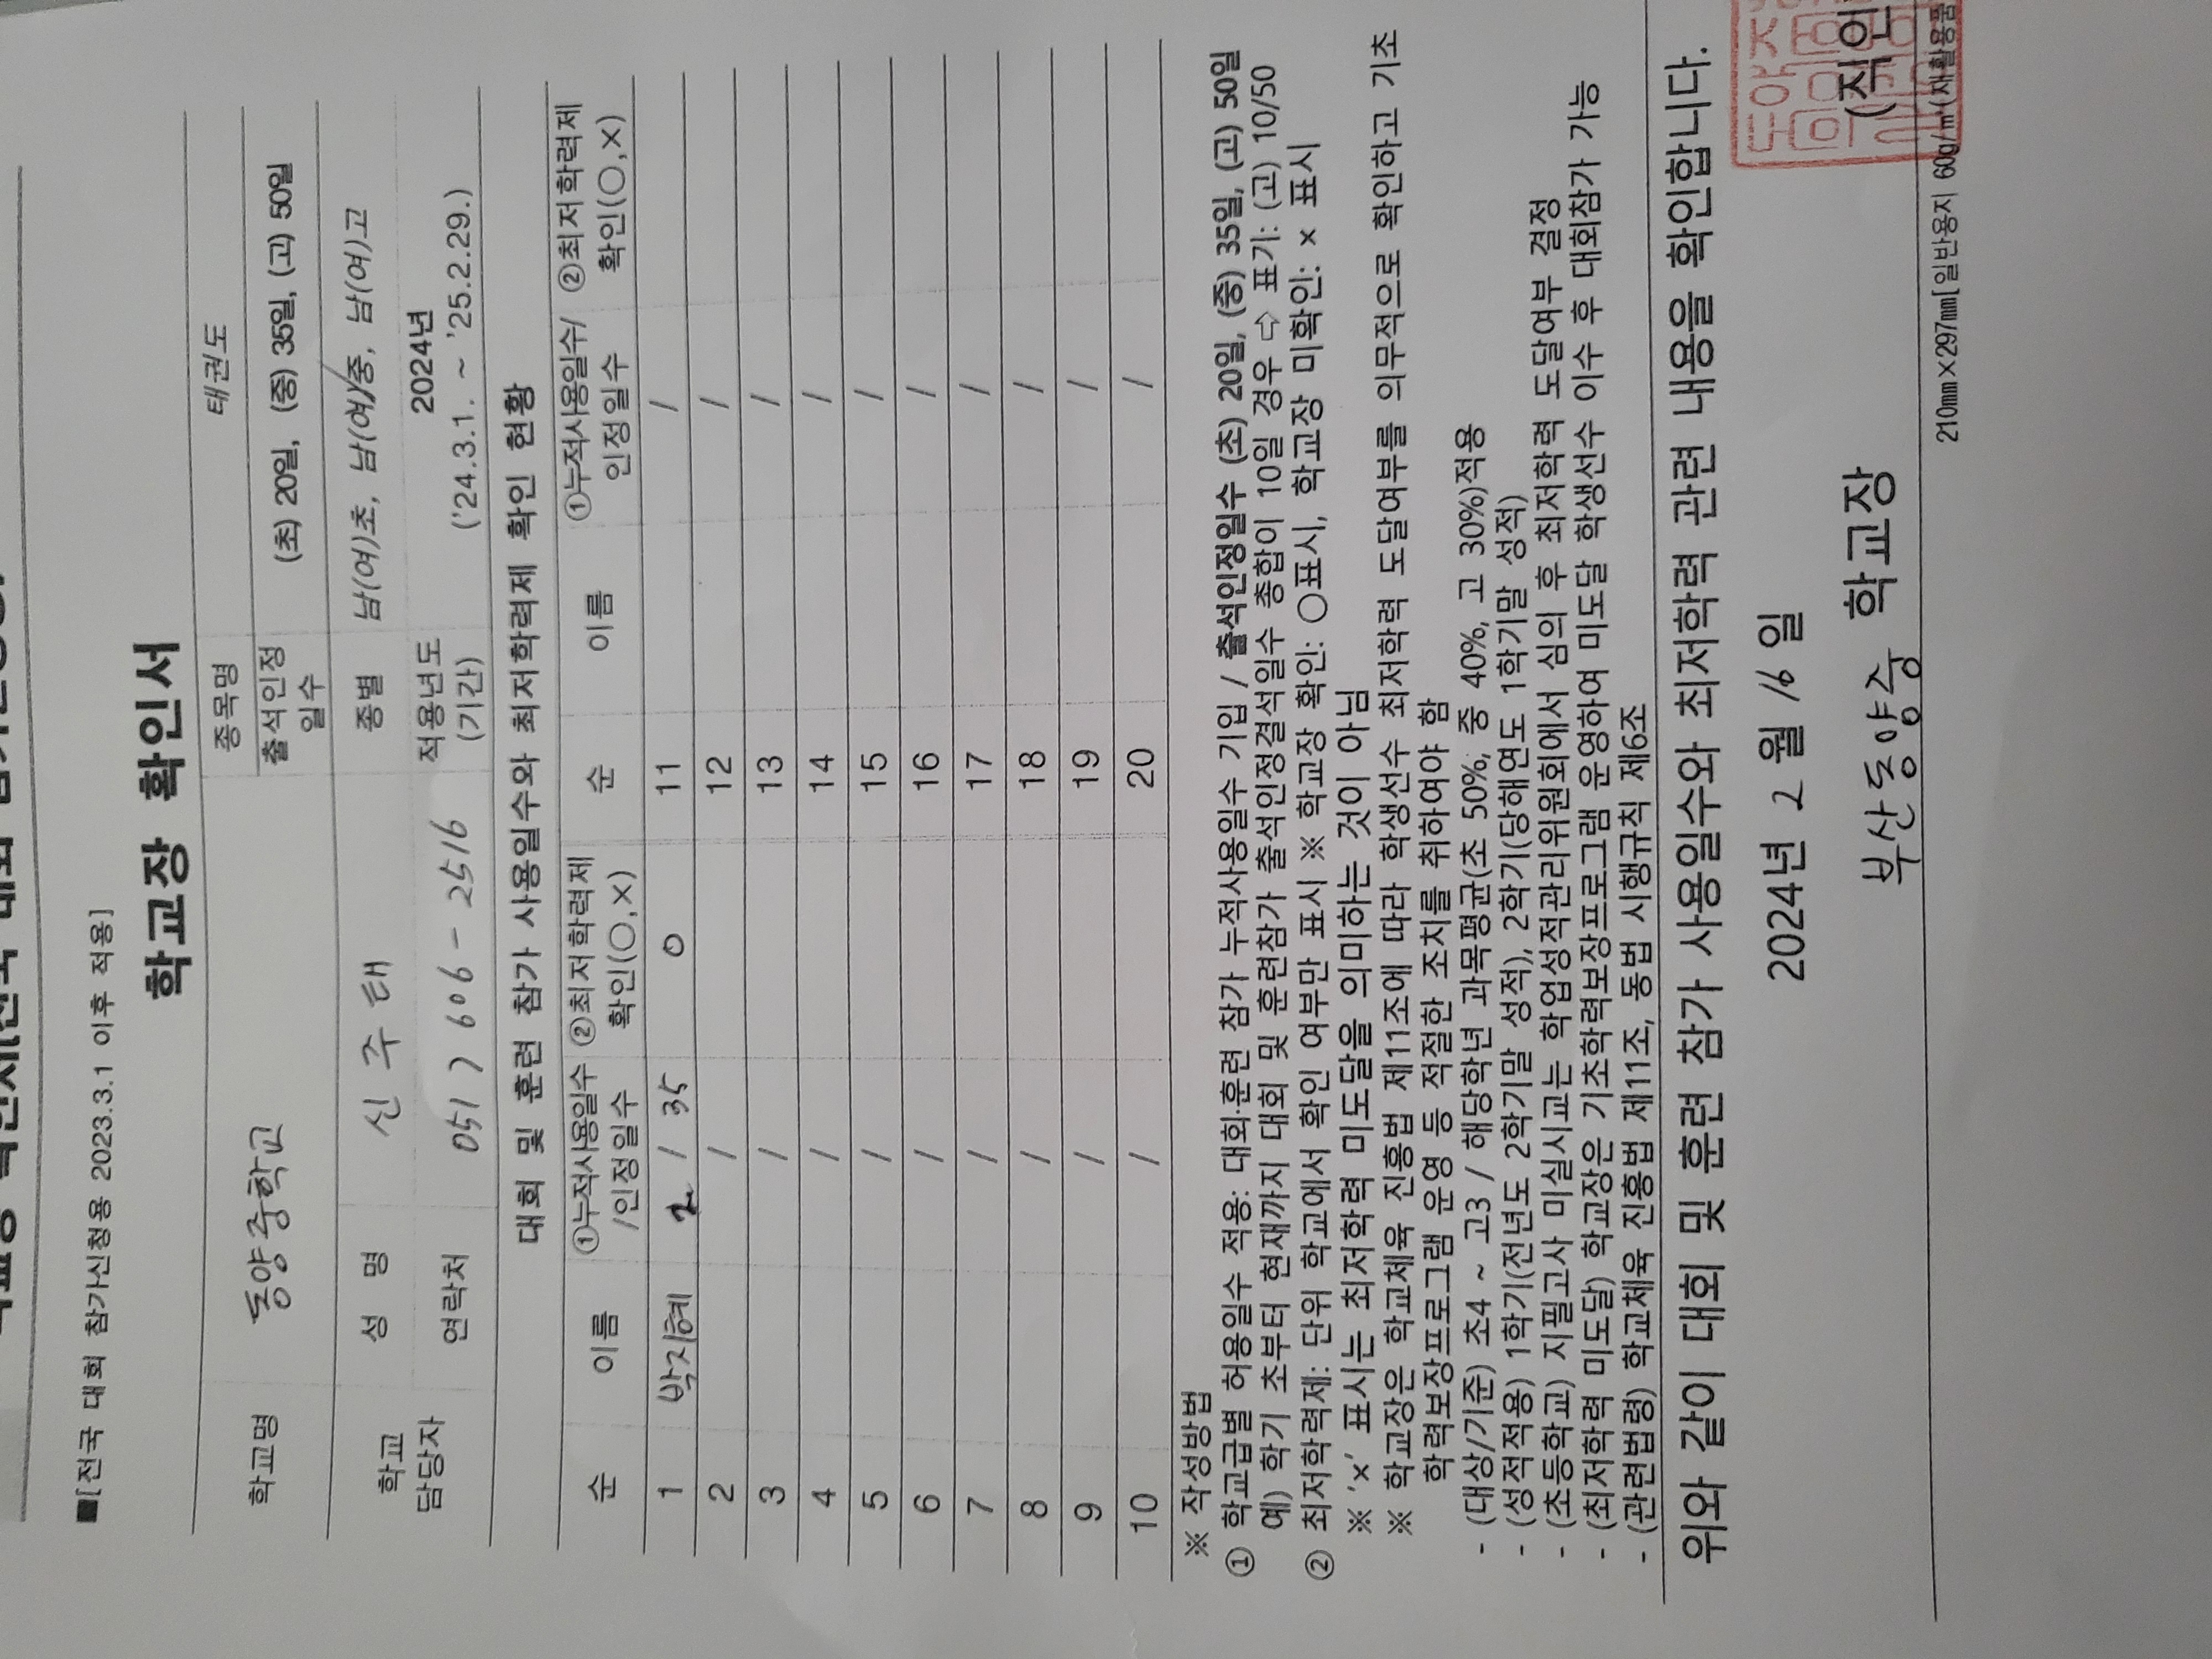 ■[전국 대회 참가신청용 2023.3.1 이후 적용]
학교장 확인서
학교명 동양중학교 종목명 태권도
출석인정일수 (초) 20일, (중) 35일, (고) 50일
학교 담당자 성 명 신주태 종별 남(여)초, 남(여)중, 남(여)고
연락처 051) 606-2516 적용년도 (기간) 2024년 ('24.3.1. ~ '25.2.29.)
대회 및 훈련 참가 사용일수와 최저학력제 확인 현황
순 이름 ①누적사용일수/인정일수 ②최저학력제 확인(○,×) 순 이름 ①누적사용일수/인정일수 ②최저학력제 확인(○,×)
1 박지혜 2 / 35 ○ 11 /
2 / 12 /
3 / 13 /
4 / 14 /
5 / 15 /
6 / 16 /
7 / 17 /
8 / 18 /
9 / 19 /
10 / 20 /
※ 작성방법
① 학교급별 허용일수 적용: 대회·훈련 참가 누적사용일수 기입 / 출석인정일수 (초) 20일, (중) 35일, (고) 50일
예) 학기 초부터 현재까지 대회 및 훈련참가 출석인정결석일수 총합이 10일 경우 ⇨ 표기: (고) 10/50
② 최저학력제: 단위 학교에서 확인 여부만 표시 ※ 학교장 확인: ○표시, 학교장 미확인: × 표시
※ '×' 표시는 최저학력 미도달을 의미하는 것이 아님
※ 학교장은 학교체육 진흥법 제11조에 따라 학생선수 최저학력 도달여부를 의무적으로 확인하고 기초
학력보장프로그램 운영 등 적절한 조치를 취하여야 함
- (대상/기준) 초4 ~ 고3 / 해당학년 과목평균(초 50%, 중 40%, 고 30%)적용
- (성적적용) 1학기(전년도 2학기말 성적), 2학기(당해연도 1학기말 성적)
- (초등학교) 지필고사 미실시교는 학업성적관리위원회에서 심의 후 최저학력 도달여부 결정
- (최저학력 미도달) 학교장은 기초학력보장프로그램 운영하여 미도달 학생선수 이수 후 대회참가 가능
- (관련법령) 학교체육 진흥법 제11조, 동법 시행규칙 제6조
위와 같이 대회 및 훈련 참가 사용일수와 최저학력 관련 내용을 확인합니다.
2024년 2 월 16 일
부산동양중 학교장 (직인
210㎜×297㎜[일반용지 60g/㎡(재활용품